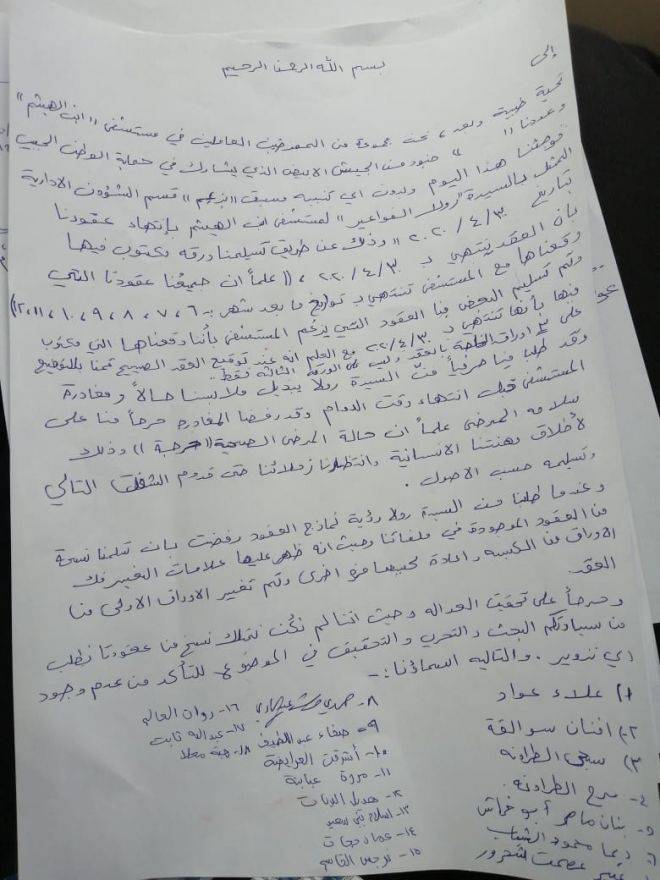 بسم الله الرحمن الرحيم
إلى
تحية طيبة وبعد، نحن مجموعة من الممرضين العاملين في مستشفى "ابن الهيثم"
وعددنا " " جنود من الجيش الابيض الذي يشارك في حماية الوطن الحبيب
فوجئنا هذا اليوم وبدون اي كتيبه مسبق قسم الشؤون الادارية
المتمثل بالسيدة "رولا الفواعير" لمستشفى ابن الهيثم بإنتهاء عقودنا
بتاريخ ٢٠٢٠/٤/٣٠ " وذلك عن طريق تسليمنا ورقه مكتوب فيها
بان العقد ينتهي بـ ٢٠٢٠/٤/٣٠، ((علماً ان جميعنا عقودنا التي
وقعناها مع المستشفى تنتهي بـ تواريخ ما بعد شهر بـ ٦،٧،٨،٩،١٠،١١،١٢))
وتم تسليم البعض منا العقود التي يزعم المستشفى بأننا وقعناها التي مكتوب
فيها بأنها تنتهي بـ ٢٠٢٠/٤/٣٠ مع العلم انه عند توقيع العقد الصحيح قمنا بالتوقيع
على ٣ اوراق بالعقد وليس على الورقة الثالثة فقط
وقد طلب منا حرفياً من السيدة رولا بتبديل ملابسنا حالاً ومغادرة
المستشفى قبل انتهاء وقت الدوام وقد رفضنا المغادره حرصاً منا على
سلامه المرضى علماً ان حالة المرضى الصحية ((حرجة)) وذلك
لأخلاق مهنتنا الانسانية وانتظارنا زملائنا حتى قدوم الشفت التالي
وتسليمه حسب الاصول.
وعندما طلبنا من السيدة رولا رؤية نماذج العقود رفضت بان تسلمنا نسخة
من العقود الموجودة في ملفاتنا وحيث انه ظهر عليها علامات التغيير فك
الاوراق من الكبسه واعادة كبسها مرة اخرى وتم تغيير الاوراق الاولى من
العقد
وحرصاً على تحقيق العداله وحيث اننا لم نكن نمتلك نسخ من عقودنا نطلب
من سيادتكم البحث والتحري والتحقيق في الموضوع للتأكد من عدم وجود
اي تزوير. والتاليه اسماؤنا:-
١) علاء عواد
٢- افنان سوالقة
٣) سجى الطراونه
٤- مرح الطراونه
٥- بنان ماهر أبو خماش
٦- ديما محمود الشياب
عصمت شحرور
٨-
٩- صفاء عبد اللطيف
١٠- أشرقت العرايضة
١١- مروة عبابنة
١٢- هديل
١٣- اسلام بني سعيد
١٤- عماد
١٥- نرجس القاسم
١٦- روان العالم
١٧- عبدالله ثابت
١٨- هبة معلا